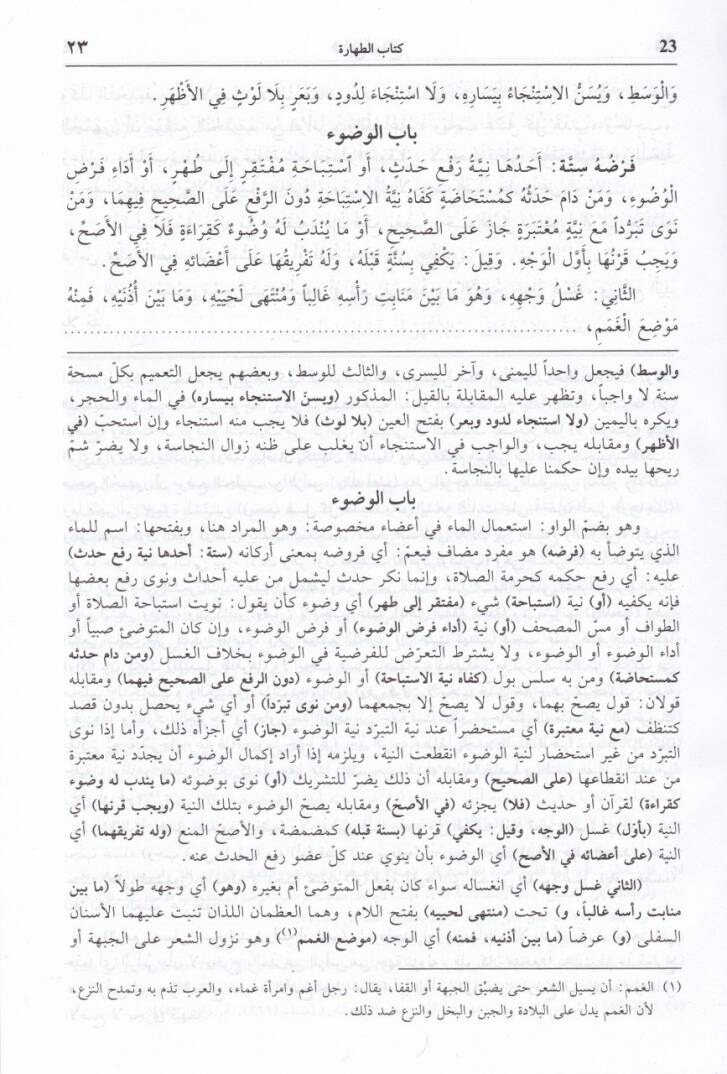 23 كتاب الطهارة ٢٣
وَالْوَسَطِ، وَيُسَنُّ الاِسْتِنْجَاءُ بِيَسَارِهِ، وَلَا اسْتِنْجَاءَ لِدُودٍ، وَبَعَرٍ بِلَا لَوْثٍ فِي الأَظْهَرِ.
باب الوضوء
فَرْضُهُ سِتَّة: أَحَدُهَا نِيَّةُ رَفْعِ حَدَثٍ، أَوِ اسْتِبَاحَةِ مُفْتَقِرٍ إِلَى طُهْرٍ، أَوْ أَدَاءِ فَرْضِ
الْوُضُوءِ، وَمَنْ دَامَ حَدَثُهُ كَمُسْتَحَاضَةٍ كَفَاهُ نِيَّةُ الاِسْتِبَاحَةِ دُونَ الرَّفْعِ عَلَى الصَّحِيحِ فِيهِمَا، وَمَنْ
نَوَى تَبَرُّداً مَعَ نِيَّةٍ مُعْتَبَرَةٍ جَازَ عَلَى الصَّحِيحِ، أَوْ مَا يُنْدَبُ لَهُ وُضُوءٌ كَقِرَاءَةٍ فَلَا فِي الأَصَحِّ،
وَيَجِبُ قَرْنُهَا بِأَوَّلِ الْوَجْهِ. وَقِيلَ: يَكْفِي بِسُنَّةٍ قَبْلَهُ، وَلَهُ تَفْرِيقُهَا عَلَى أَعْضَائِهِ فِي الأَصَحِّ.
الثَّانِي: غَسْلُ وَجْهِهِ، وَهُوَ مَا بَيْنَ مَنَابِتِ رَأْسِهِ غَالِباً وَمُنْتَهَى لَحْيَيْهِ، وَمَا بَيْنَ أُذُنَيْهِ، فَمِنْهُ
مَوْضِعُ الْغَمَمِ، ........................................
والوسط) فيجعل واحداً لليمنى، وآخر لليسرى، والثالث للوسط، وبعضهم يجعل التعميم بكلّ مسحة
سنة لا واجباً، وتظهر عليه المقابلة بالقيل: المذكور (ويسنّ الاستنجاء بيساره) في الماء والحجر،
ويكره باليمين (ولا استنجاء لدود وبعر) بفتح العين (بلا لوث) فلا يجب منه استنجاء وإن استحبّ (في
الأظهر) ومقابله يجب، والواجب في الاستنجاء أن يغلب على ظنه زوال النجاسة، ولا يضرّ شمّ
ريحها بيده وإن حكمنا عليها بالنجاسة.
باب الوضوء
وهو بضمّ الواو: استعمال الماء في أعضاء مخصوصة: وهو المراد هنا، وبفتحها: اسم للماء
الذي يتوضأ به (فرضه) هو مفرد مضاف فيعمّ: أي فروضه بمعنى أركانه (ستة: أحدها نية رفع حدث)
عليه: أي رفع حكمه كحرمة الصلاة، وإنما نكر حدث ليشمل من عليه أحداث ونوى رفع بعضها
فإنه يكفيه (أو) نية (استباحة) شيء (مفتقر إلى طهر) أي وضوء كأن يقول: نويت استباحة الصلاة أو
الطواف أو مسّ المصحف (أو) نية (أداء فرض الوضوء) أو فرض الوضوء، وإن كان المتوضئ صبياً أو
أداء الوضوء أو الوضوء، ولا يشترط التعرّض للفرضية في الوضوء بخلاف الغسل (ومن دام حدثه
كمستحاضة) ومن به سلس بول (كفاه نية الاستباحة) أو الوضوء (دون الرفع على الصحيح فيهما) ومقابله
قولان: قول يصحّ بهما، وقول لا يصحّ إلا بجمعهما (ومن نوى تبرّداً) أو أي شيء يحصل بدون قصد
كتنظف (مع نية معتبرة) أي مستحضراً عند نية التبرّد نية الوضوء (جاز) أي أجزأه ذلك، وأما إذا نوى
التبرّد من غير استحضار لنية الوضوء انقطعت النية، ويلزمه إذا أراد إكمال الوضوء أن يجدّد نية معتبرة
من عند انقطاعها (على الصحيح) ومقابله أن ذلك يضرّ للتشريك (أو) نوى بوضوئه (ما يندب له وضوء
كقراءة) لقرآن أو حديث (فلا) يجزئه (في الأصحّ) ومقابله يصحّ الوضوء بتلك النية (ويجب قرنها) أي
النية (بأوّل) غسل (الوجه، وقيل: يكفي) قرنها (بسنة قبله) كمضمضة، والأصحّ المنع (وله تفريقهما) أي
النية (على أعضائه في الأصح) أي الوضوء بأن ينوي عند كلّ عضو رفع الحدث عنه.
(الثاني غسل وجهه) أي انغساله سواء كان بفعل المتوضئ أم بغيره (وهو) أي وجهه طولاً (ما بين
منابت رأسه غالباً، و) تحت (منتهى لحييه) بفتح اللام، وهما العظمان اللذان تنبت عليهما الأسنان
السفلى (و) عرضاً (ما بين أذنيه، فمنه) أي الوجه (موضع الغمم(١)) وهو نزول الشعر على الجبهة أو
(١) الغمم: أن يسيل الشعر حتى يضيّق الجبهة أو القفا، يقال: رجل أغم وامرأة غماء، والعرب تذم به وتمدح النزع،
لأن الغمم يدل على البلادة والجبن والبخل والنزع ضد ذلك.